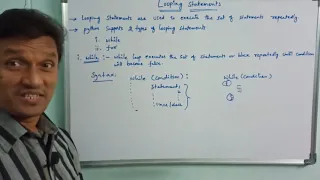 Looping Statements
→ Looping Statements are used to execute the set of statements repeatedly
→ python supports 2 types of looping statements
i. while
ii. for
i. while :- while loop executes the set of statements or block repeatedly until condition
will become false.
Syntax: while (condition): while (condition)
Statements
incr/decr